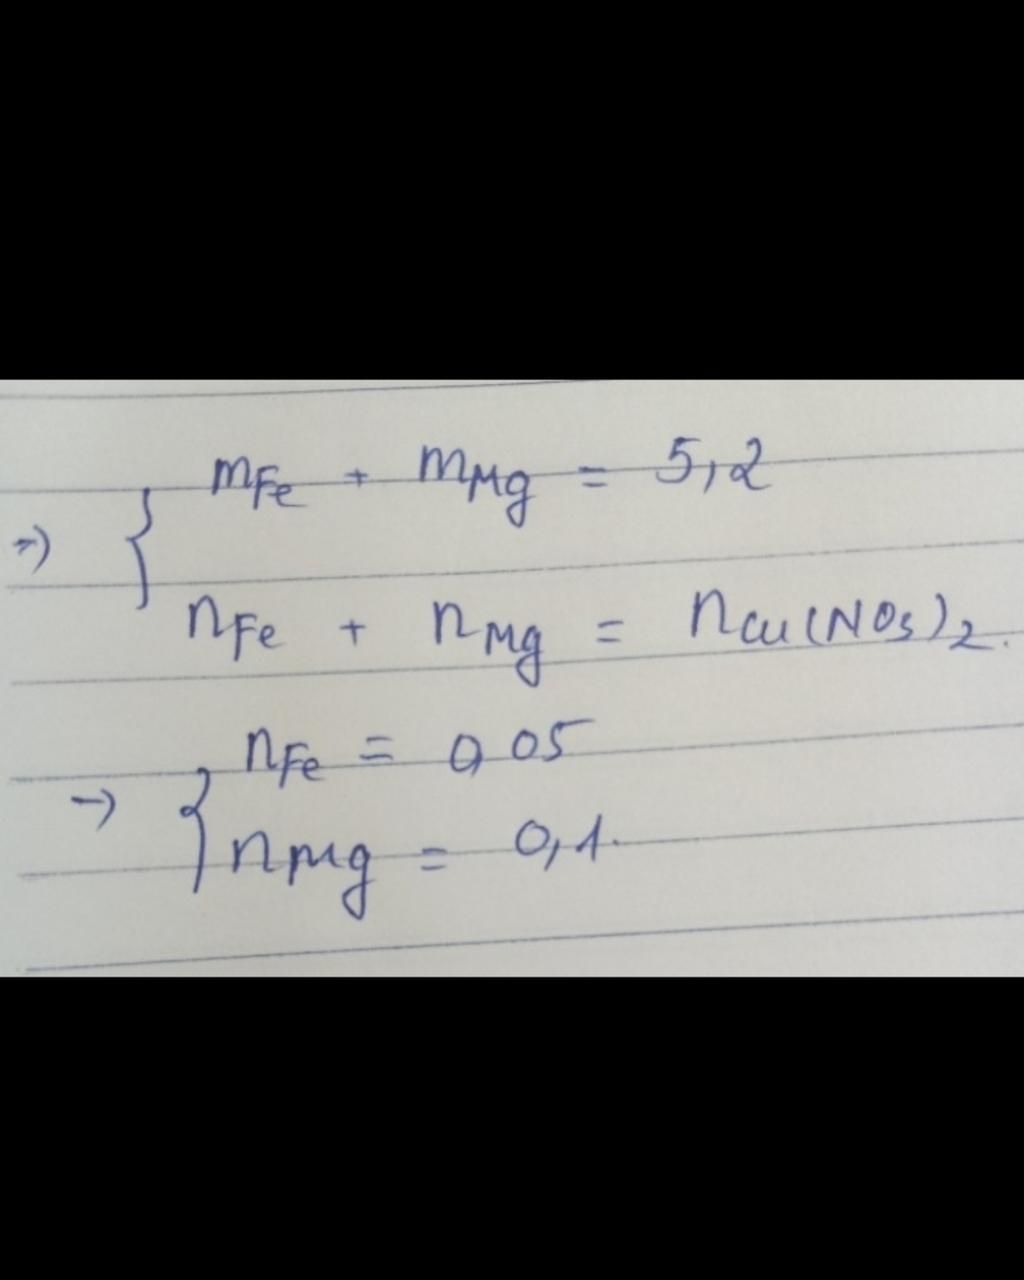 ⇒ { mFe + mMg = 5,2
nFe + nMg = nCu(NO3)2.
→ { nFe = 0,05
nMg = 0,1.